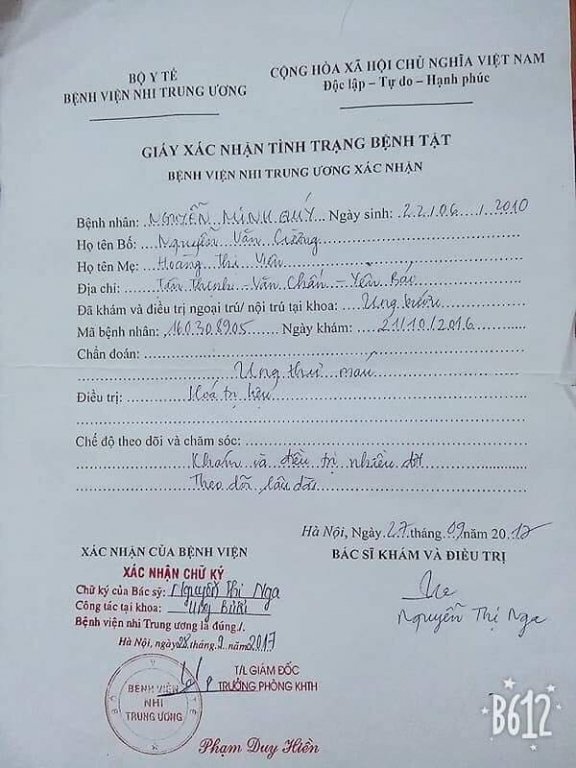 BỘ Y TẾ
BỆNH VIỆN NHI TRUNG ƯƠNG
CỘNG HÒA XÃ HỘI CHỦ NGHĨA VIỆT NAM
Độc lập – Tự do – Hạnh phúc
GIẤY XÁC NHẬN TÌNH TRẠNG BỆNH TẬT
BỆNH VIỆN NHI TRUNG ƯƠNG XÁC NHẬN
Bệnh nhân: NGUYỄN MINH QUÝ Ngày sinh: 22/06/2010
Họ tên Bố: Nguyễn Văn Cường
Họ tên Mẹ: Hoàng Thị Viên
Địa chỉ: Tân Thịnh - Văn Chấn - Yên Bái
Đã khám và điều trị ngoại trú/ nội trú tại khoa: Ung bướu
Mã bệnh nhân: 160308905 Ngày khám: 21/10/2016
Chẩn đoán:
Ung thư máu
Điều trị: Hoá trị liệu
Chế độ theo dõi và chăm sóc:
Khám và điều trị nhiều đợt
Theo dõi lâu dài
Hà Nội, Ngày 27 tháng 09 năm 2017
XÁC NHẬN CỦA BỆNH VIỆN
BÁC SĨ KHÁM VÀ ĐIỀU TRỊ
XÁC NHẬN CHỮ KÝ
Chữ ký của Bác sỹ: Nguyễn Thị Nga
Công tác tại khoa: Ung Bướu
Bệnh viện nhi Trung ương là đúng./.
Hà Nội, ngày 28 tháng 9 năm 2017
Nguyễn Thị Nga
T/L GIÁM ĐỐC
TRƯỞNG PHÒNG KHTH
BỆNH VIỆN
NHI
TRUNG ƯƠNG
Phạm Duy Hiền
B612